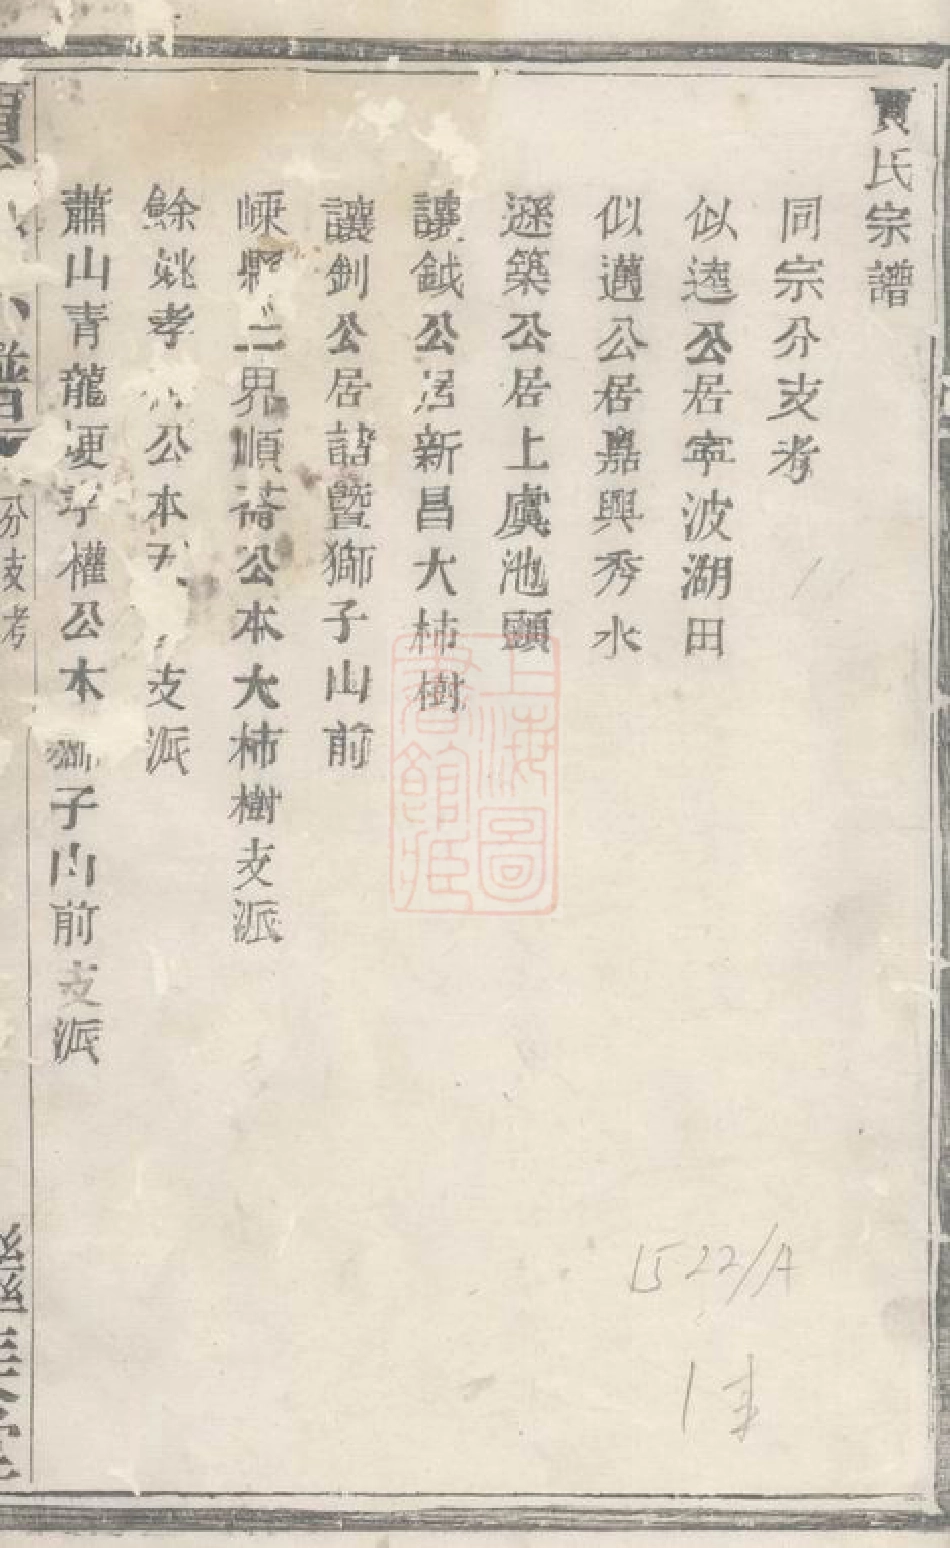 賈氏宗譜
同宗分支考
似逵公居寧波湖田
似邁公居嘉興秀水
遜築公居上虞池頭
讓鉞公居新昌大柿樹
讓釗公居諸暨獅子山前
嵊縣二界順公本大柿樹支派
餘姚孝公本支派
蕭山青龍埂孝權公本獅子山前支派
分支考
上海圖
書館藏
1522/A